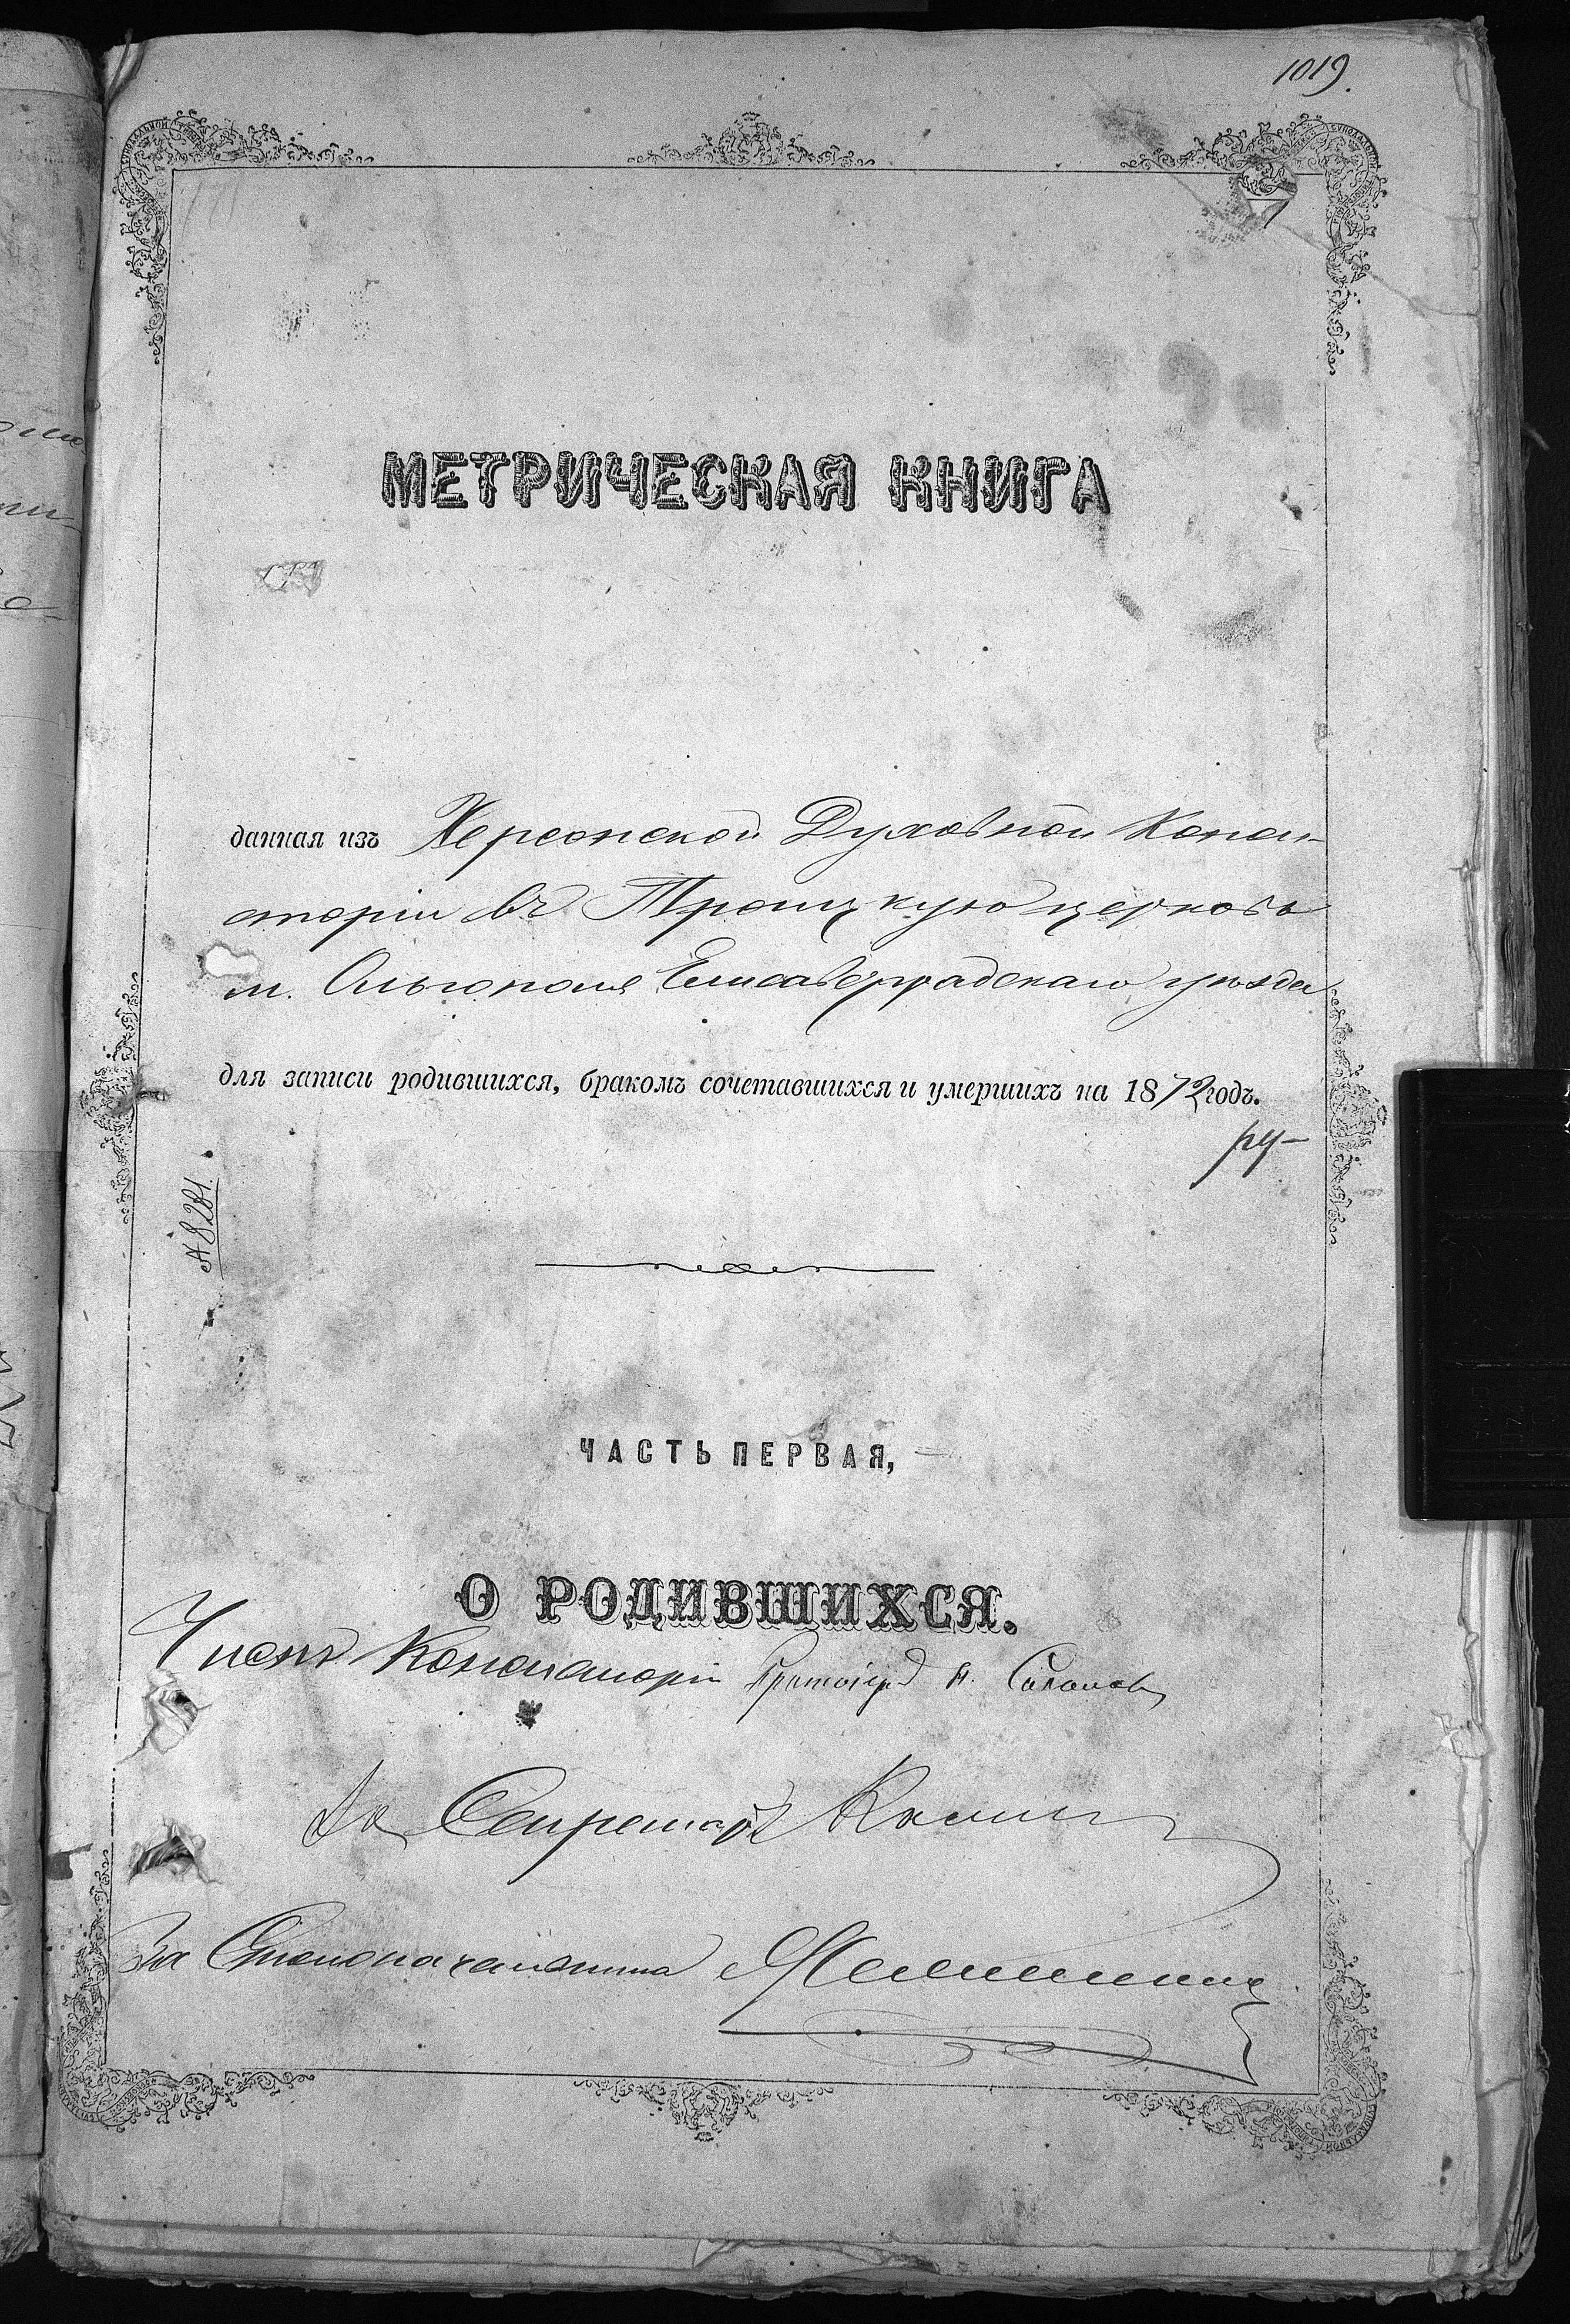 1019.
МЕТРИЧЕСКАЯ КНИГА
данная изъ Херсонской Духовной Конси-
сторіи въ Троицкую церковь
м. Ольгополя Елисаветградскаго уѣзда
для записи родившихся, бракомъ сочетавшихся и умершихъ на 1872 годъ.
№ 8281.
ЧАСТЬ ПЕРВАЯ,
О РОДИВШИХСЯ.
Членъ Консисторіи Протоіерей
За Секретаря
За Столоначальника